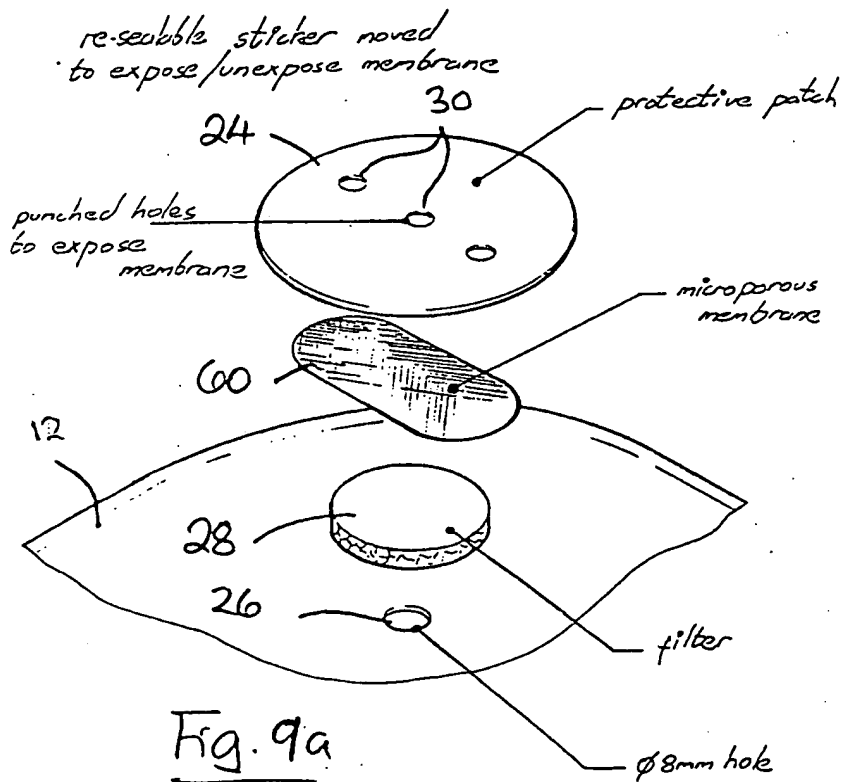 re-sealable sticker moved
to expose/unexpose membrane
30
protective patch
24
punched holes
to expose
membrane
microporous
membrane
60
12
28
26
filter
Fig. 9a
ø8mm hole